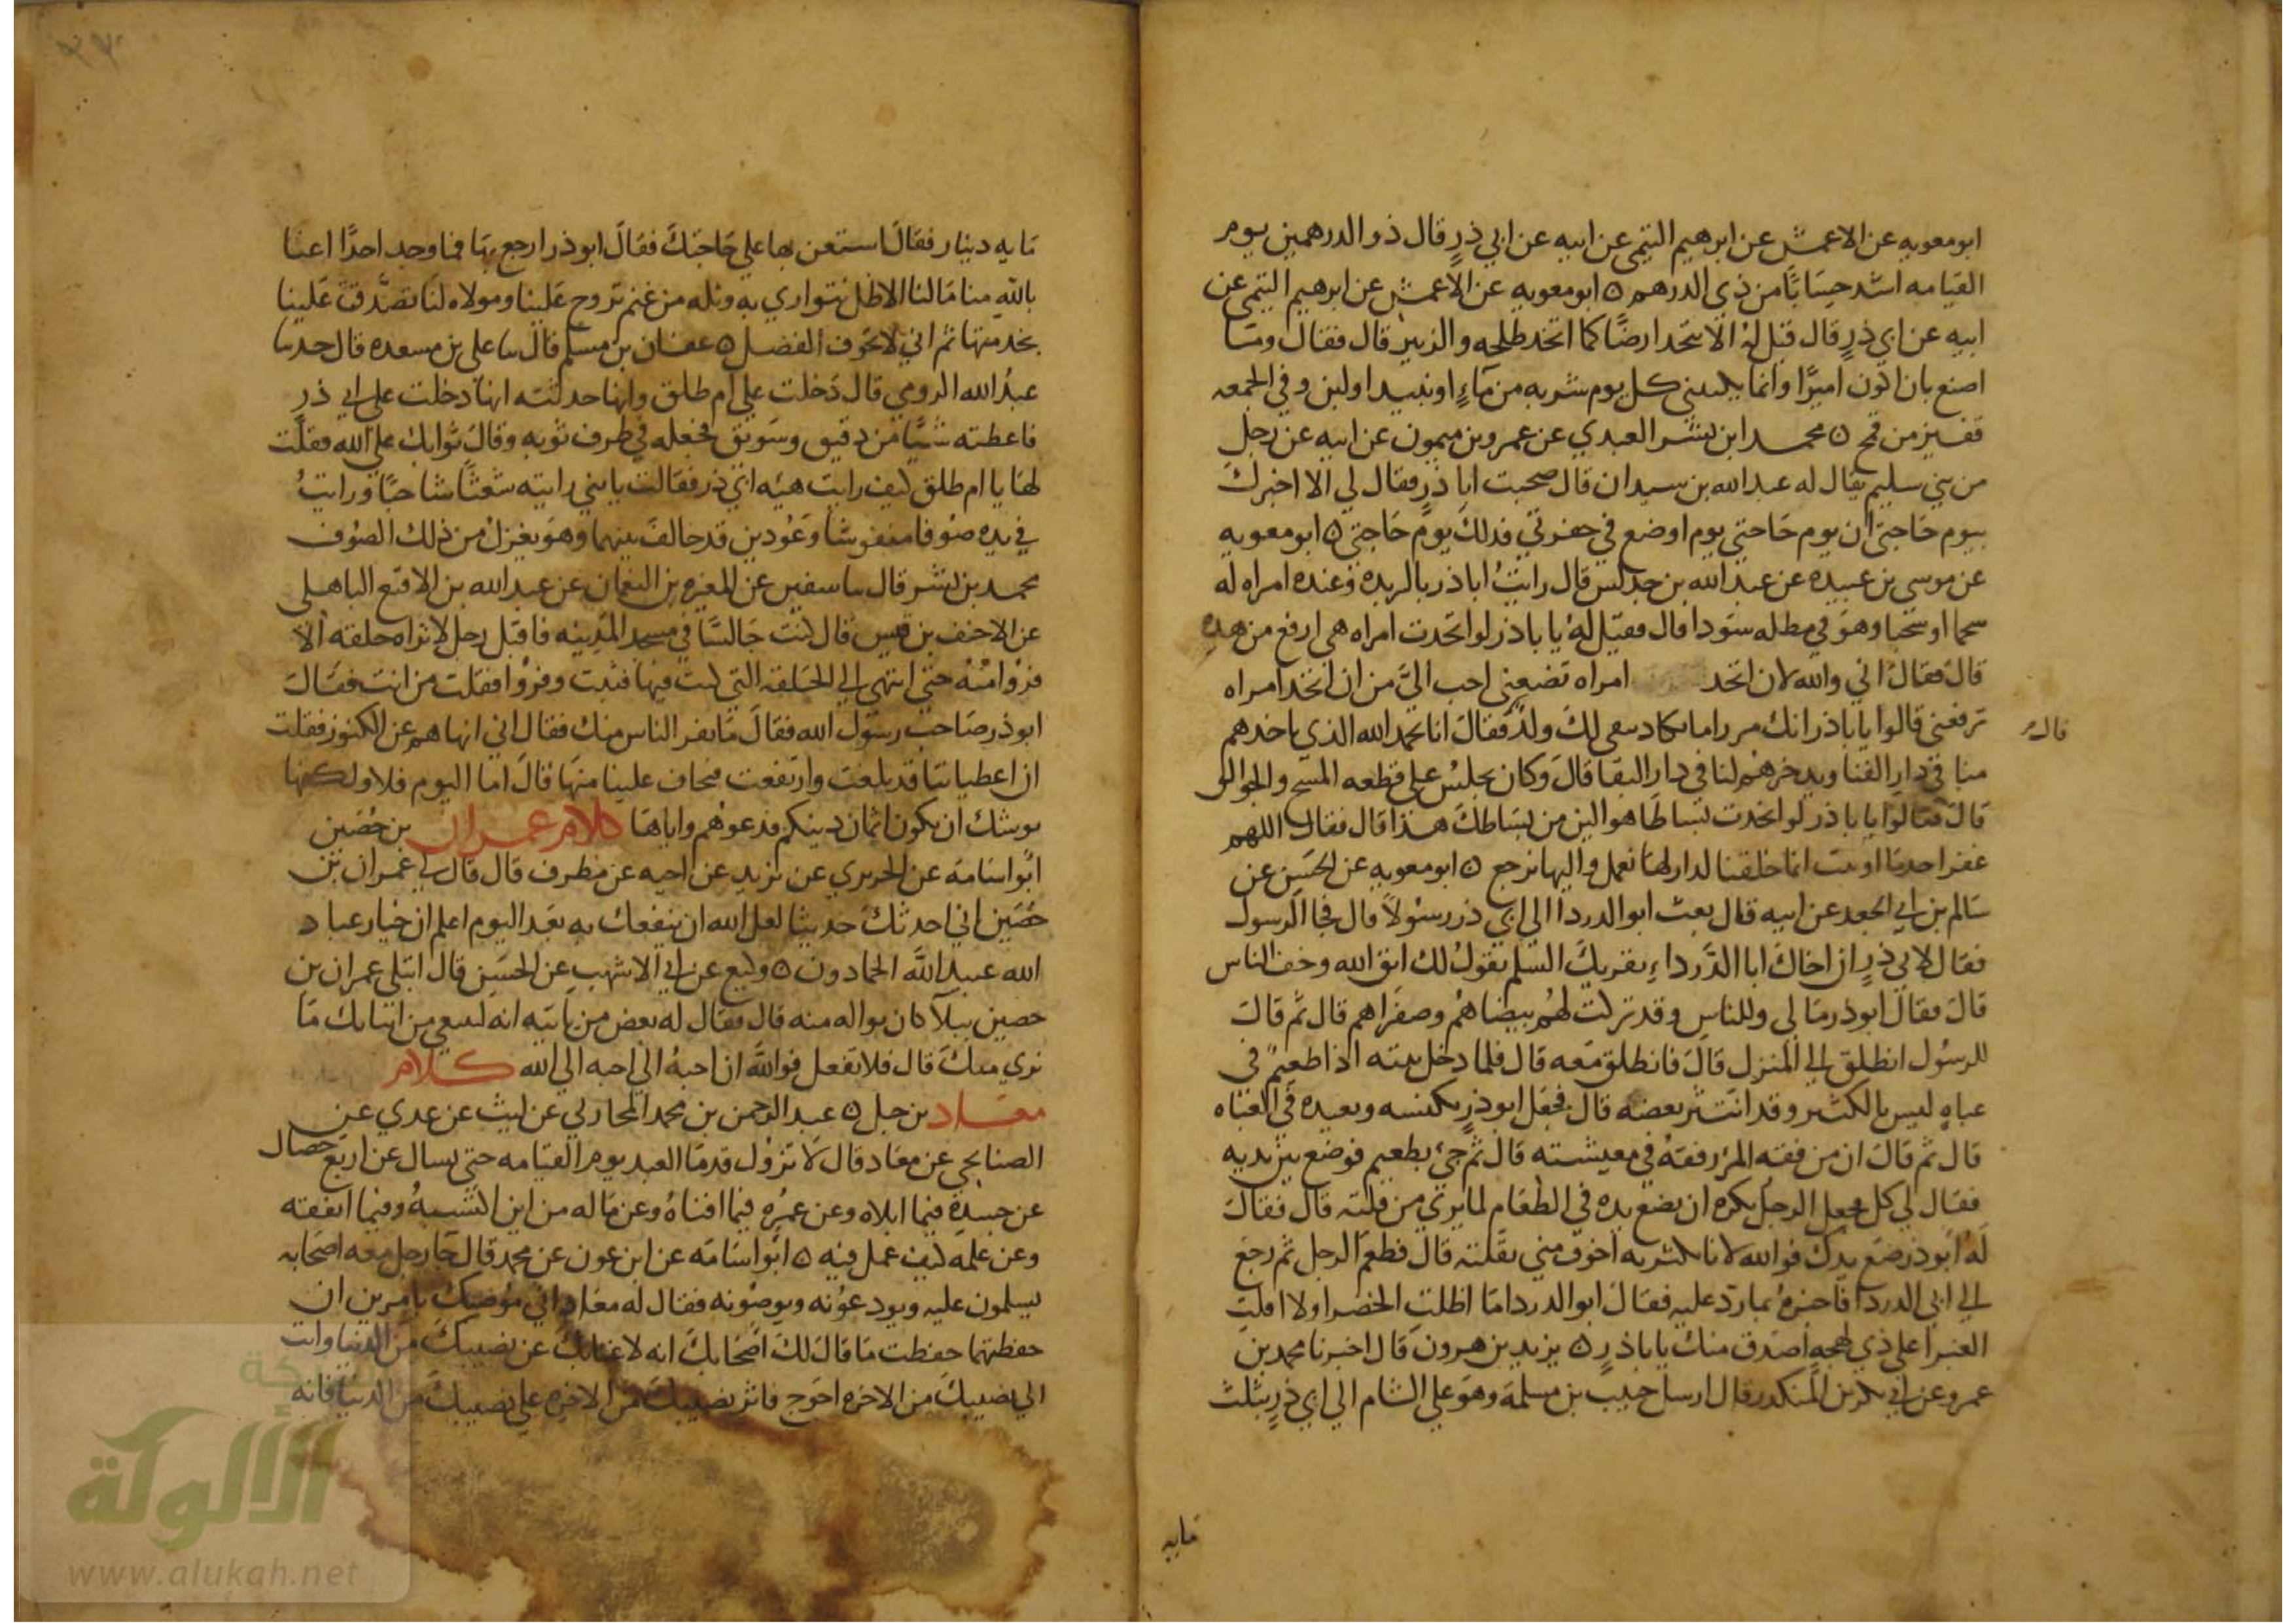 ابو معويه عن الاعمش عن ابرهيم التيمي عن ابيه عن ابي ذرٍ قال ذو الدرهمين يوم
القيامه اشد حسَابًا من ذي الدرهم ه ابو معويه عن الاعمش عن ابرهيم التيمي عن
ابيه عن ابي ذرٍ قال قيل لهُ الا تتخد ارضًا كما اتخد طلحه والزبير قال فقال وما
اصنع بان اكون اميرًا وانما يكفيني كل يوم شربه من مَآءٍ او نبيد او لبن وفي الجمعه
قفيز من قمح ه محمد ابن بشر العبدي عن عمرو بن ميمون عن ابيه عن رجل
من بني سليم يقال له عبد الله بن سيدان قال صحبت ابا ذرٍ فقال لي الا اخبرك
بيوم حَاجتي ان يوم حَاجتي يوم اوضع في حفرتي فدلك يوم حَاجتي ه ابو معويه
عن موسي بن عبيده عن عبد الله بن خراش قال رايتُ ابا ذر بالربده وعنده امراه له
سحما او شحبا وهو في مطله سَودا قال فقيل لهُ يا با ذر لو اتخدت امراه هي ارفع من هده
قال فقال اني والله لان اتخد امراه تضعني احب اليَّ من ان اتخد امراه
ترفعني قالوا يا با ذر انك امرء ما يكاد يبقي لك ولدٌ فقال انا نحمد الله الذي ياخدهم
منا في دار الفنا ويدخرهم لنا في دار البقا قال وكان يجلسُ علي قطعه المسح والجوالق
قال فقالوا يا با ذر لو اتخدت بسَاطًا هو الين من بسَاطك هذا قال فقال اللهم
غفرا خد ما اوتيت انما خلقنا لدار لها نعمل واليها نرجع ه ابو معويه عن الحسَن عن
سَالم بن ابي الجعد عن ابيه قال بعث ابو الدردا الي ابي ذر رسولاً قال فجا الرسول
فقال لابي ذرٍ ان اخاك ابا الدَّرداءِ يقريك السلم يقولُ لك اتق الله وخف الناس
قال فقال ابو ذر مَا لي وللناس وقد تركت لهُم بيضَاهُم وصفرَاهم قال ثم قال
للرسُول انطلق الي المنزل قال فانطلق مَعه قال فلما دخل بيته اذا طعيمٌ في
عباهٍ ليس بالكثير وقد انتثر بعضه قال فجعَل ابو ذرٍ يكنسه ويعيده في العباه
قال ثم قال ان من فقه المرء رفقهُ في معيشته قال ثم جيَ بطعيم فوضع بين يديه
فقال لي كل فجعل الرجل يكره ان يضع يده في الطعَام لما يري من قلته قال فقال
لهُ ابو ذر ضَع يدك فوالله لانا بكثرته اخوف مني بقلته قال فطعَم الرجل ثم رجع
الي ابي الدردا فاخبرهُ بما رد عليه فقال ابو الدردا مَا اظلت الخضرا ولا اقلت
الغبرا علي ذي لهجهٍ اصدق منك يا با ذرٍ ه يزيد بن هرون قال اخبرنا محمد بن
عمرو عن ابي بكر بن المنكدر قال ارسل حبيب بن مسلمه وهو علي الشام الي ابي ذرٍ بثلث
قال
مايه
مَايه دينار فقال استعن بها علي حَاجتك فقال ابو ذر ارجع بهَا فما وجد احدًا اغنا
بالله منا مَا لنا الا ظل نتواري به وثله من غنم تروح عَلينا ومولاه لنا تصَّدقت عَلينا
بخدمتها ثم اني لا تخوف الفضل ه عفان بن مسلم قال سا علي بن مسعده قال حدسا
عبدُ الله الرومي قال دخلت علي ام طلق وانها حدثته انهَا دخلت علي ابي ذرٍ
فاعطته شيًا من دقيق وسَويق فجعله في طرف ثوبه وقال ثوابك علي الله فقلت
لهَا يا ام طلق كيف رايت هيئه ابي ذر فقالت يا بني رايته شعثًا شاحبًا ورايتُ
في يده صوفا منفوشا وعُودين قد خالف بينهما وهو يغزل من ذلك الصُوف
محمد بن بشر قال سا سفين عن المغيره بن النعمان عن عبد الله بن الاقنع الباهلي
عن الاحنف بن قيس قال كنت جَالسًا في مسجد المدينه فاقبل رجل لا تراه حلقه الا
فروا منهُ حتي انتهي الي الحَلقه التي كنت فيها فثبت وفروا فقلت من انت فقال
ابو ذر صَاحب رسُول الله فقال مَا يفر الناس منك فقال اني انهاهم عن الكنوز فقلت
ان اعطياتنا قد بلغت وارتفعت فتخاف علينا منهَا قال امَا اليوم فلا ولكنها
يوشك ان يكون اثمان دينكم فدعوهُم واياهَا كلام عمران بن حُصَين
ابو اسَامه عن الجريري عن يزيد عن اخيه عن مطرف قال قال لي عمران بن
حُصَين اني احدثك حديثا لعل الله ان ينفعك به بعد اليوم اعلم ان خيار عباد
الله عبيد الله الحمادون ه وكيع عن ابي الاشهب عن الحسَن قال ابتلي عمران بن
حصين ببلآ كان يواله منه قال فقال له بعض من ياتيه انه ليمنعني من اتيانك مَا
نري منك قال فلا تفعل فوالله ان احبهُ الي احبه الي الله كلام
معَاد بن جبل ه عبد الرحمن بن محمد المحاربي عن ليث عن عدي عن
الصنابحي عن معَاد قال لا تزول قدمَا العبد يوم القيامه حتي يسال عن اربَع خصَال
عن جسَدهِ فيما ابلاه وعن عمُرِهِ فيما افناهُ وعن مَاله من اين اكتسبهُ وفيما انفقه
وعن علمه كيف عمل فيه ه ابو اسَامه عن ابن عون عن محمد قال جَا رجل معه اصحَابه
يسلمون عليه ويودعُونه ويوصُونه فقال له معَاد اني مُوصيك بامرين ان
حفظتهما حفظت مَا قال لك اصحَابك انه لا غنا بك عن نصيبك من الدنيا وانت
الي نصيبك من الاخره احوج فاثر نصيبك من الاخره علي نصيبك من الدنيا فانه
الألوكة
www.alukah.net